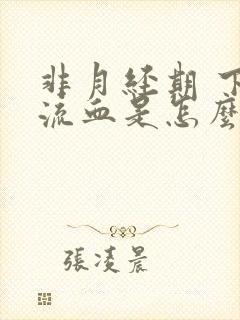 非月經期 下
流血是怎麼
張凌晨